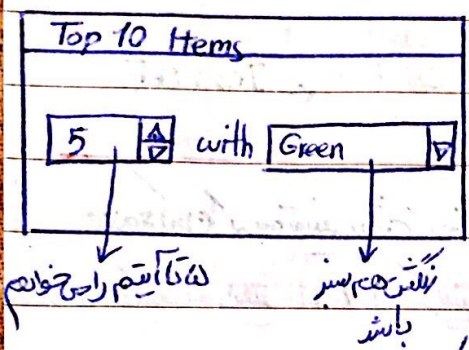 Top 10 Items
5 with Green
۵ تا آیتم را می خواهم
رنگش هم سبز
باشد